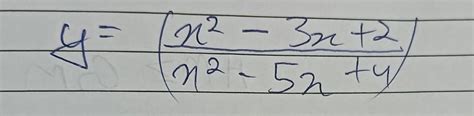 y = (x² - 3x + 2 / x² - 5x + 4)